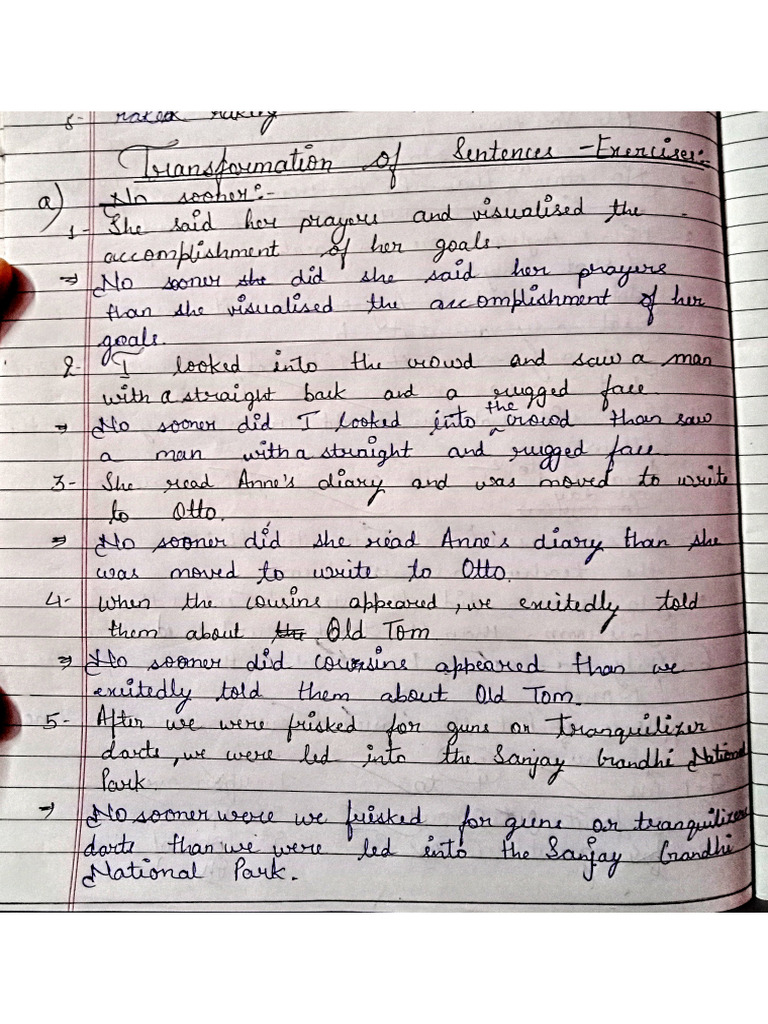 8-
Transformation of Sentences - Exercises:-
a) No sooner:-
1- She said her prayers and visualised the
accomplishment of her goals.
⇒ No sooner she did she said her prayers
than she visualised the accomplishment of her
goals.
2- I looked into the crowd and saw a man
with a straight back and a rugged face
⇒ No sooner did I looked into the crowd than saw
a man with a straight and rugged face.
3- She read Anne's diary and was moved to write
to Otto.
⇒ No sooner did she read Anne's diary than she
was moved to write to Otto.
4- When the cousins appeared, we excitedly told
them about the Old Tom
⇒ No sooner did cousins appeared than we
excitedly told them about Old Tom.
5- After we were frisked for guns or tranquilizer
darts, we were led into the Sanjay Gandhi National
Park.
→ No sooner were we frisked for guns or tranquilizer
darts than we were led into the Sanjay Gandhi
National Park.